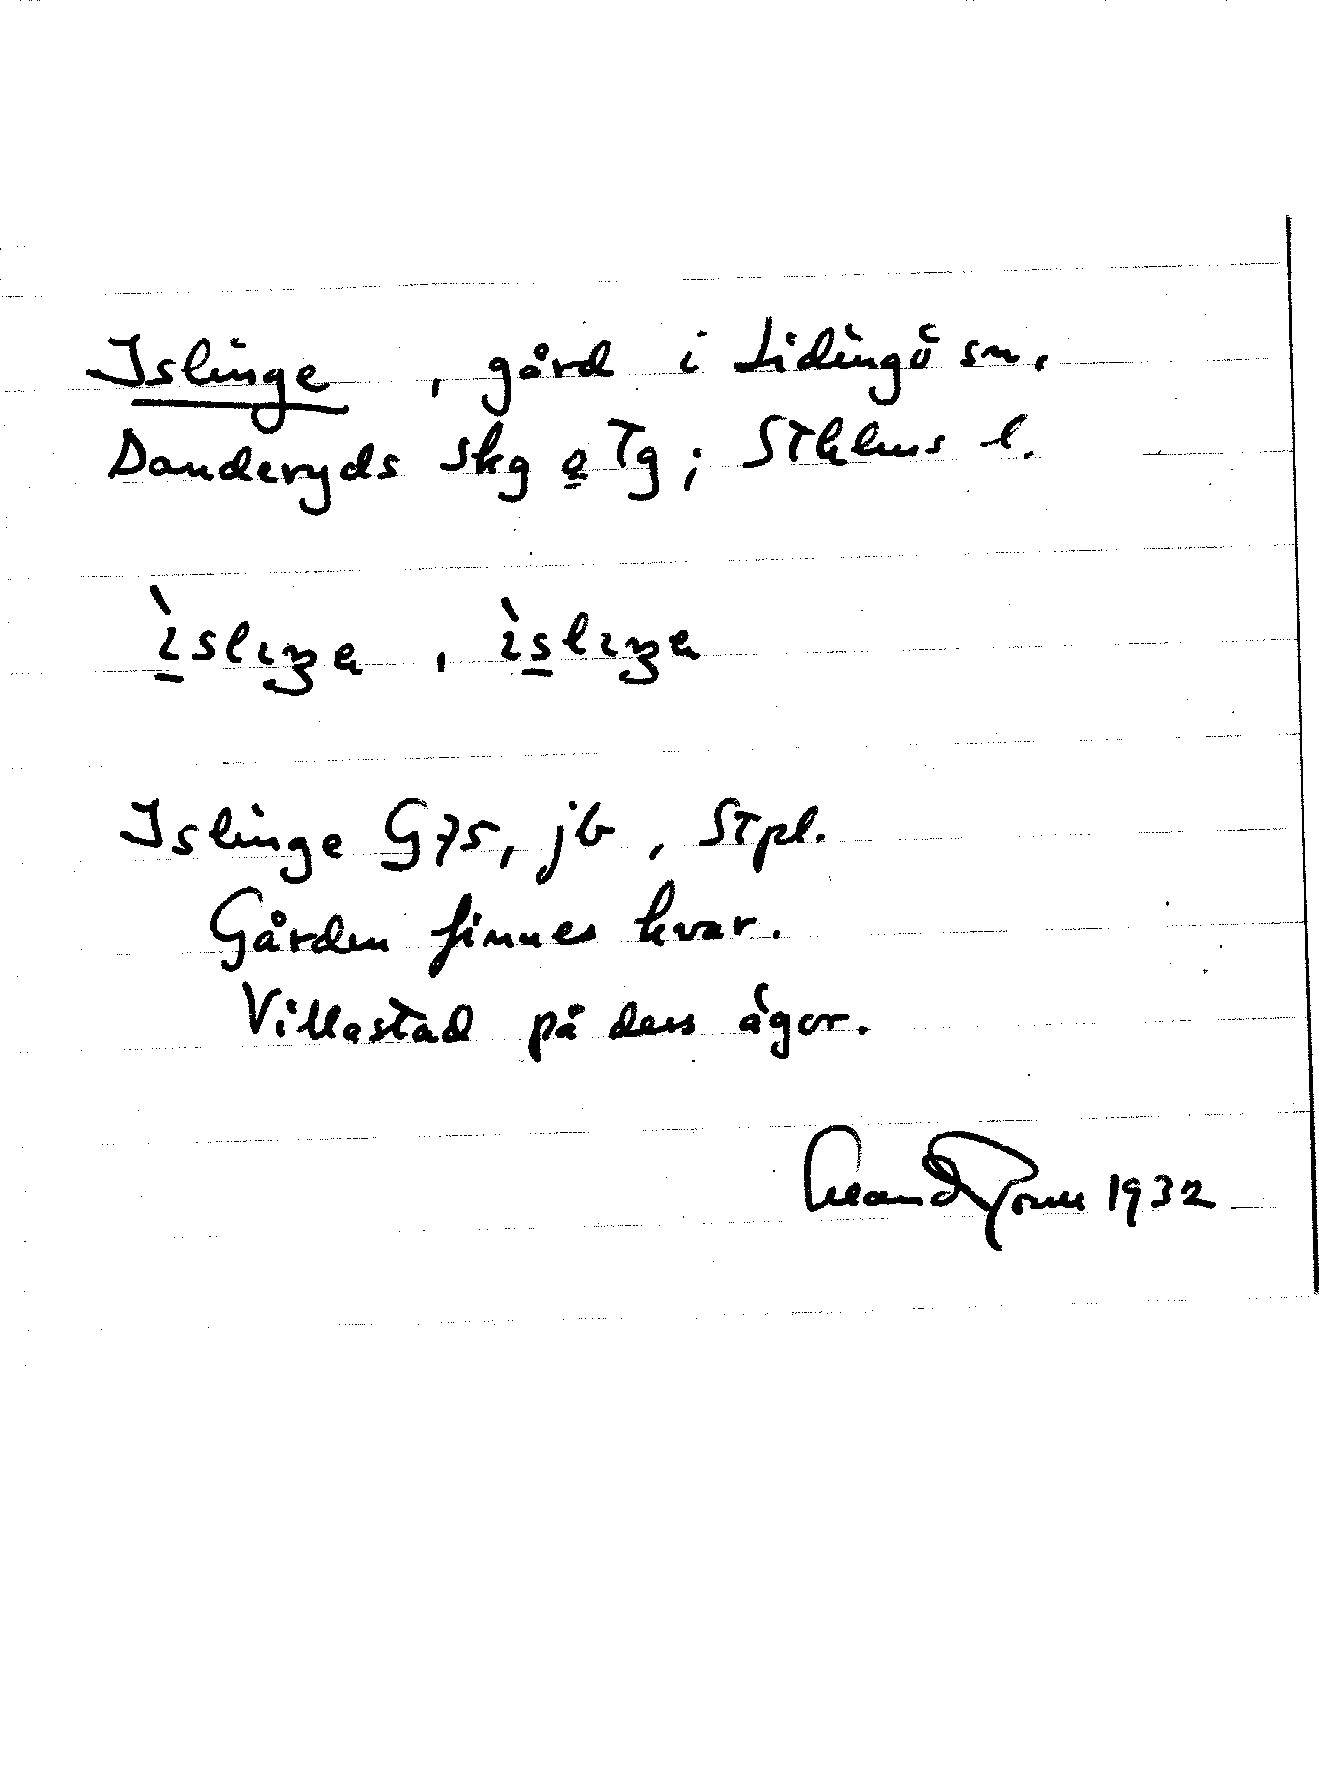 Islinge, gård i Lidingö sn.
Danderyds skg o Tg; Sthlms l.
ìslıŋɜ, ìslıŋɜ
Islinge G75, jb, Stpl.
Gården finnes kvar.
Villastad på dess ägor.
1932